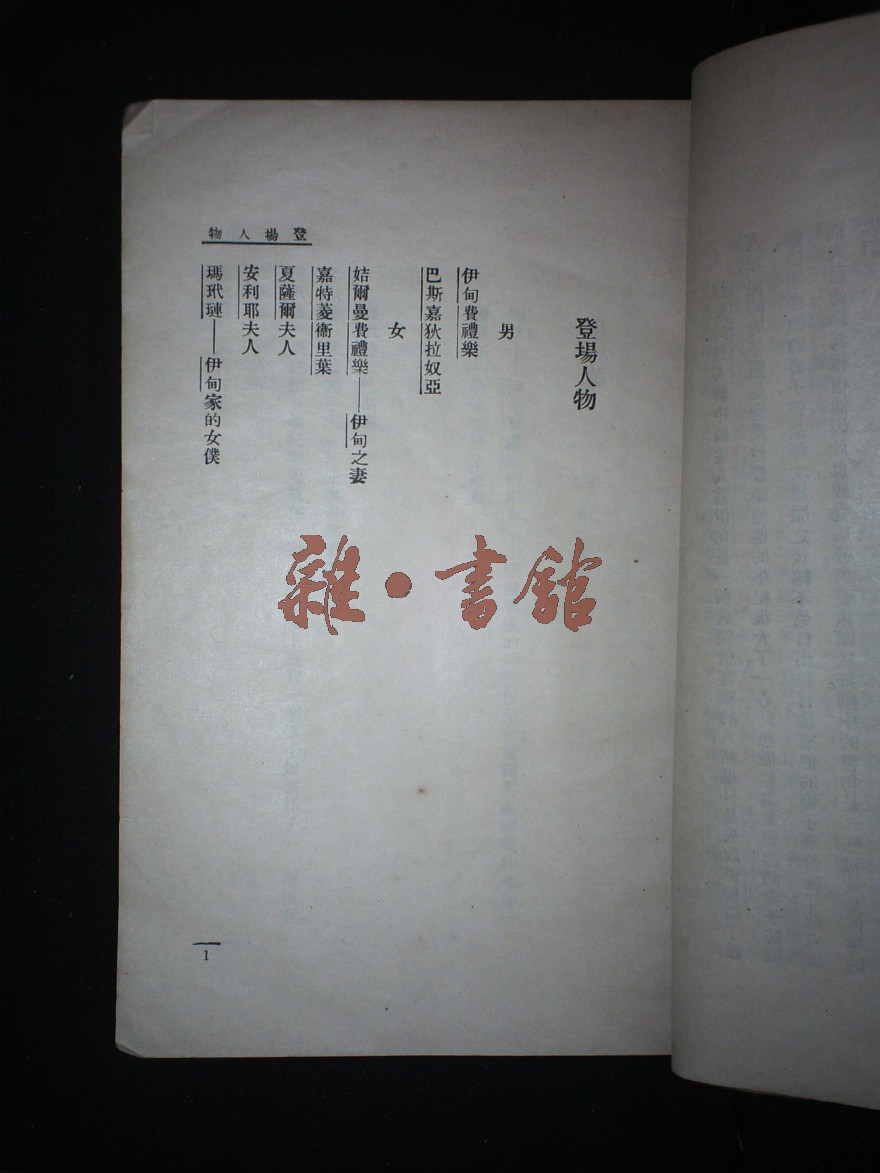 登場人物
男
伊甸費禮樂
巴斯嘉狄拉奴亞
女
姞爾曼費禮樂——伊甸之妻
嘉特菱衞里葉
夏薩爾夫人
安利耶夫人
瑪玳璉——伊甸家的女僕
登場人物
1
雜·書館